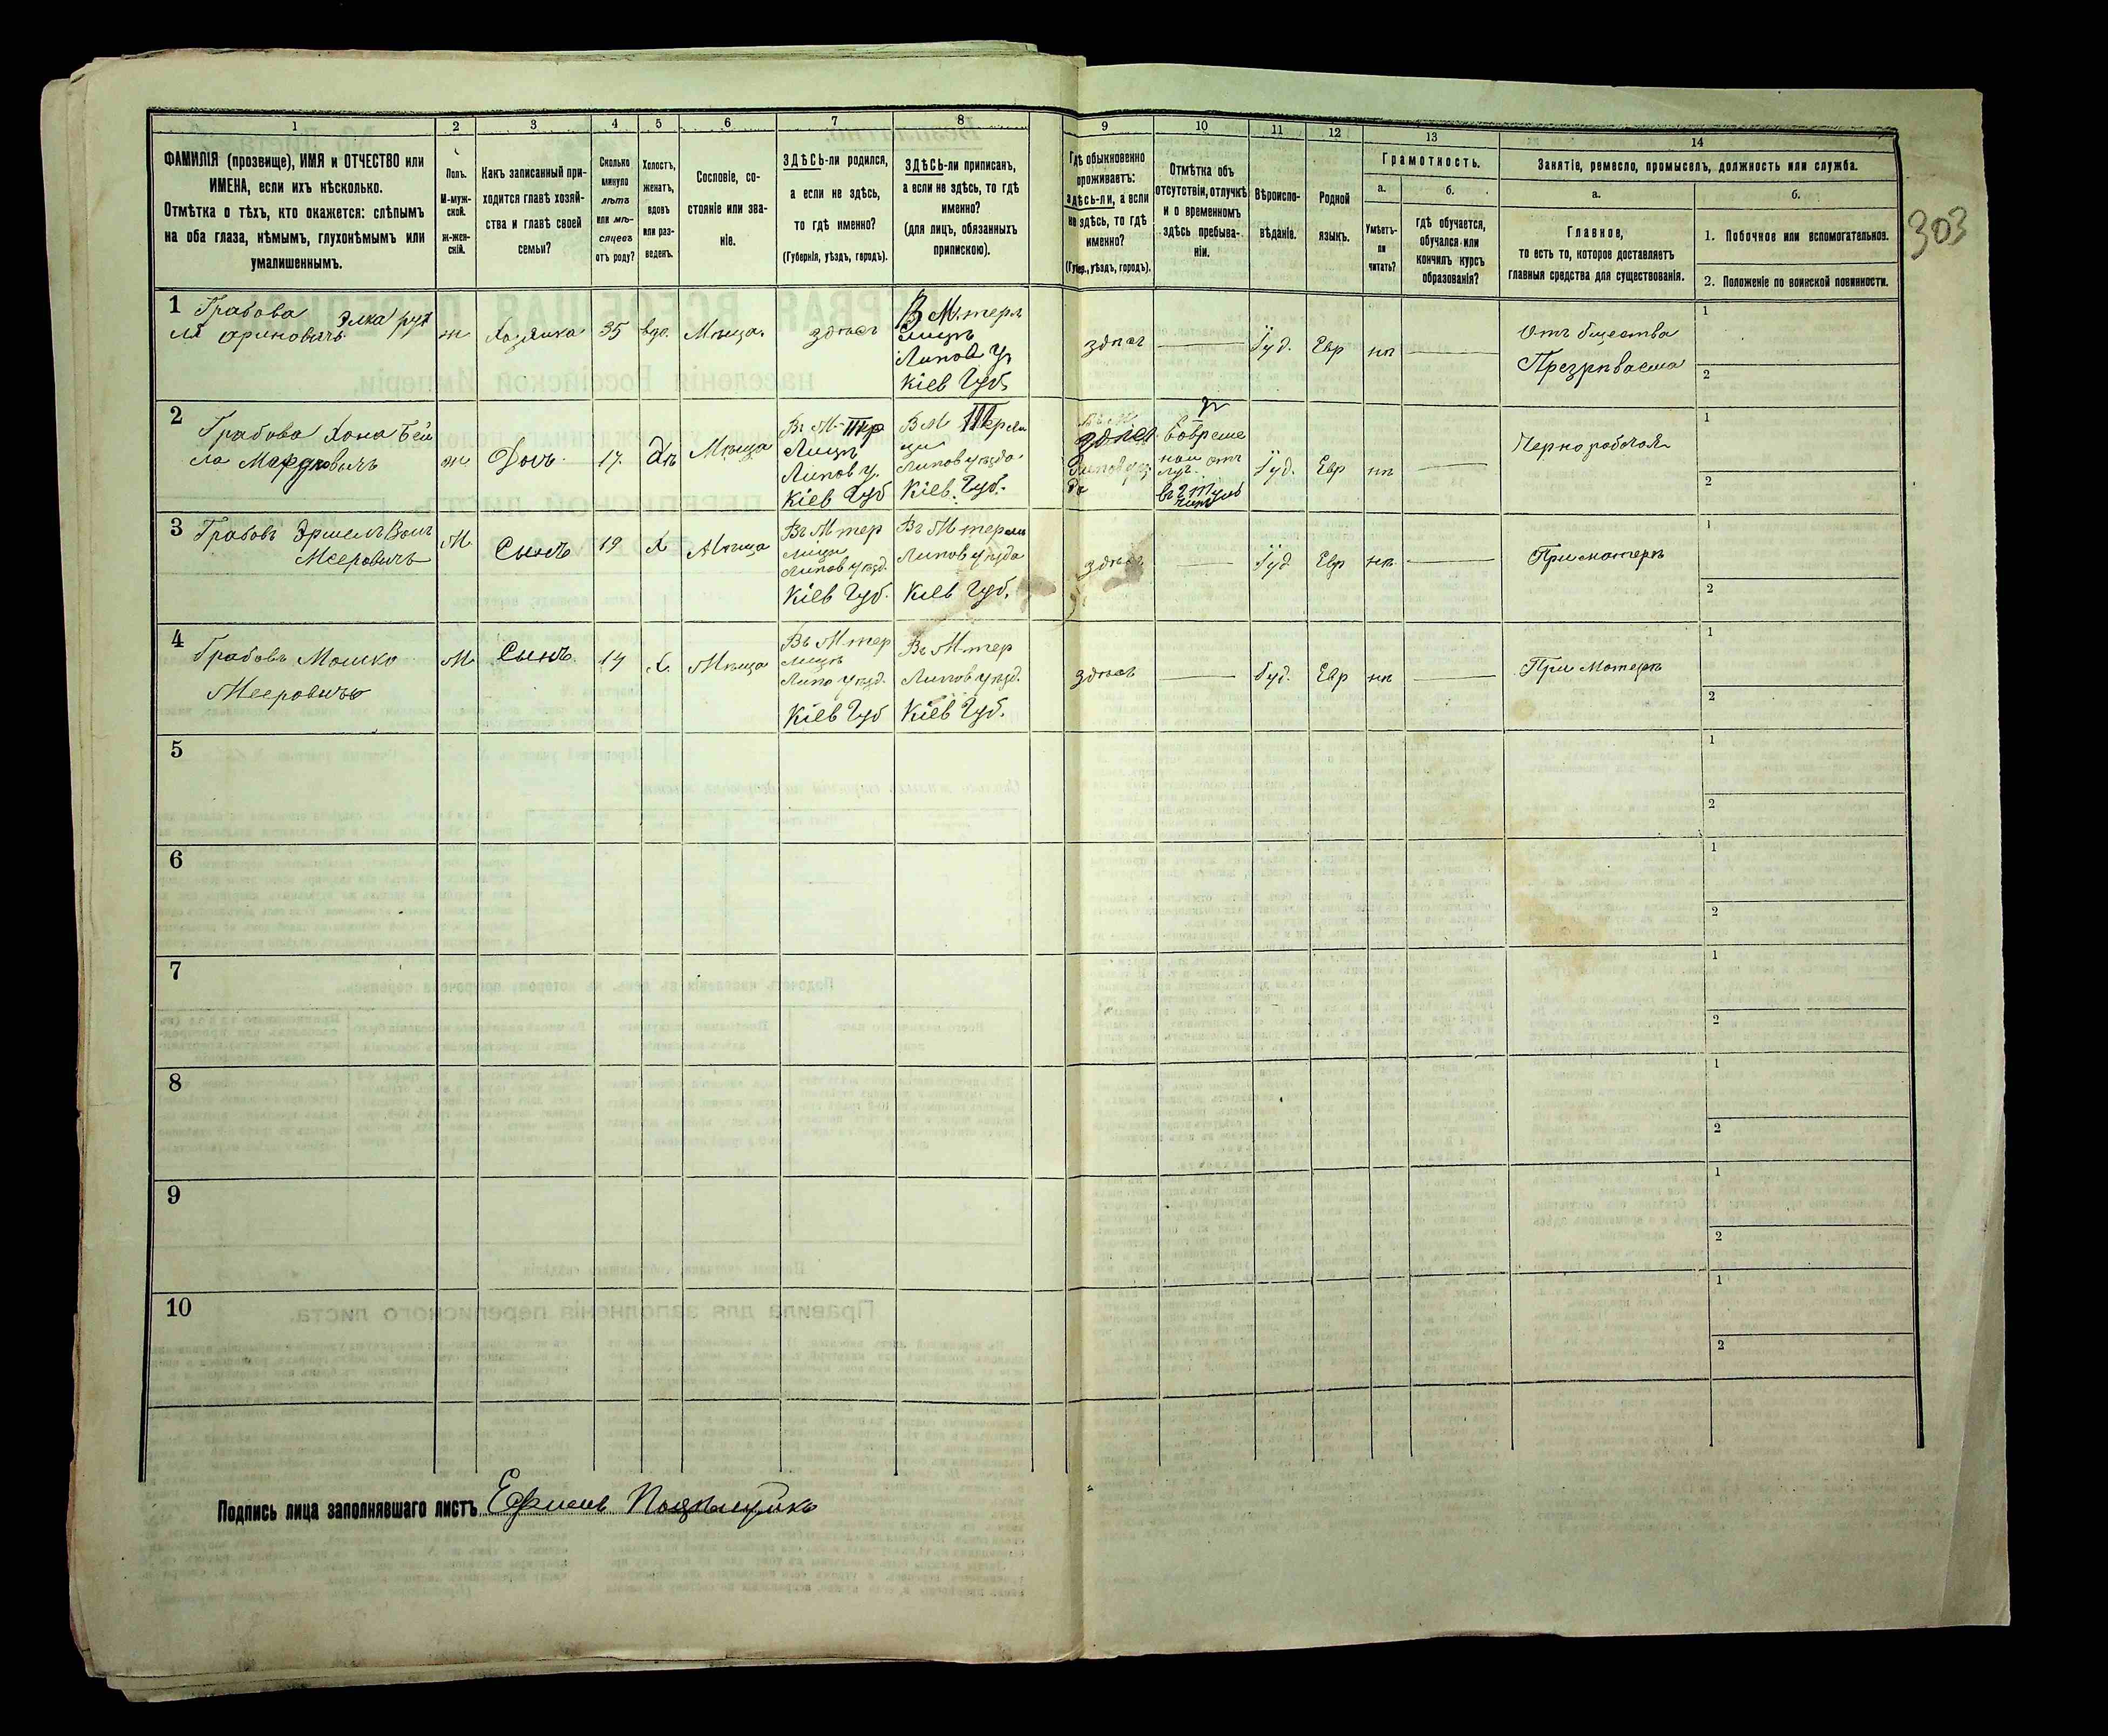 1 2 3 4 5 6 7 8 9 10 11 12 13 14
ФАМИЛІЯ (прозвище), ИМЯ и ОТЧЕСТВО или
ИМЕНА, если ихъ нѣсколько.
Отмѣтка о тѣхъ, кто окажется: слѣпымъ
на оба глаза, нѣмымъ, глухонѣмымъ или
умалишеннымъ.
Полъ.
М-муж-
ской.
ж-жен-
скій.
Какъ записанный при-
ходится главѣ хозяй-
ства и главѣ своей
семьи?
Сколько
минуло
лѣтъ
или мѣ-
сяцевъ
отъ роду?
Холостъ,
женатъ,
вдовъ
или раз-
веденъ.
Сословіе, со-
стояніе или зва-
ніе.
ЗДѢСЬ-ли родился,
а если не здѣсь,
то гдѣ именно?
(Губернія, уѣздъ, городъ).
ЗДѢСЬ-ли приписанъ,
а если не здѣсь, то гдѣ
именно?
(для лицъ, обязанныхъ
припискою).
Гдѣ обыкновенно
проживаетъ:
здѣсь-ли, а если
не здѣсь, то гдѣ
именно?
(Губер., уѣздъ, городъ).
Отмѣтка объ
отсутствіи, отлучкѣ
и о временномъ
здѣсь пребыва-
ніи.
Вѣроиспо-
вѣданіе.
Родной
языкъ.
Грамотность.
а.
Умѣетъ-
ли
читать?
б.
гдѣ обучается,
обучался или
кончилъ курсъ
образованія?
Занятіе, ремесло, промыселъ, должность или служба.
а.
Главное,
то есть то, которое доставляетъ
главныя средства для существованія.
б.
1. Побочное или вспомогательное.
2. Положеніе по воинской повинности.
303
1 Грабова Элка
ж Хозяйка 35 вдо. Мѣща. здѣсь
Липов у
Кіев Губ,
здѣсь Іуд. Евр нѣ
Отъ бщества
1
2
2 Грабова Хона Бей
ла
ж Дочь 17. Дѣ Мѣща
Липов у.
Кіев Губ
Липов уѣзда
Кіев. Губ.
здѣсь
Іуд. Евр нѣ
Чернорабочая
1
2
3 Грабовъ Эршель Вольъ
Мееровичъ
М. Сынъ 19 Х Мѣща
Въ М тер
лици
Липов уѣзд.
Кіев Губ.
Липов уѣзда
Кіев Губ.
здѣсь Іуд Евр нѣ
При матерѣ
1
2
4 Грабовъ Мошко
Мееровичъ
М Сынъ. 14 Х. Мѣща
Въ М тер
лицѣ
Липо уѣзд.
Кіев Губ
Въ М тер
Липов уѣзд.
Кіев Губ.
здѣсь Іуд. Евр нѣ
При Матерѣ
1
2
5
1
2
6
1
2
7
1
2
8
1
2
9
1
2
10
1
2
Подпись лица заполнявшаго листъ